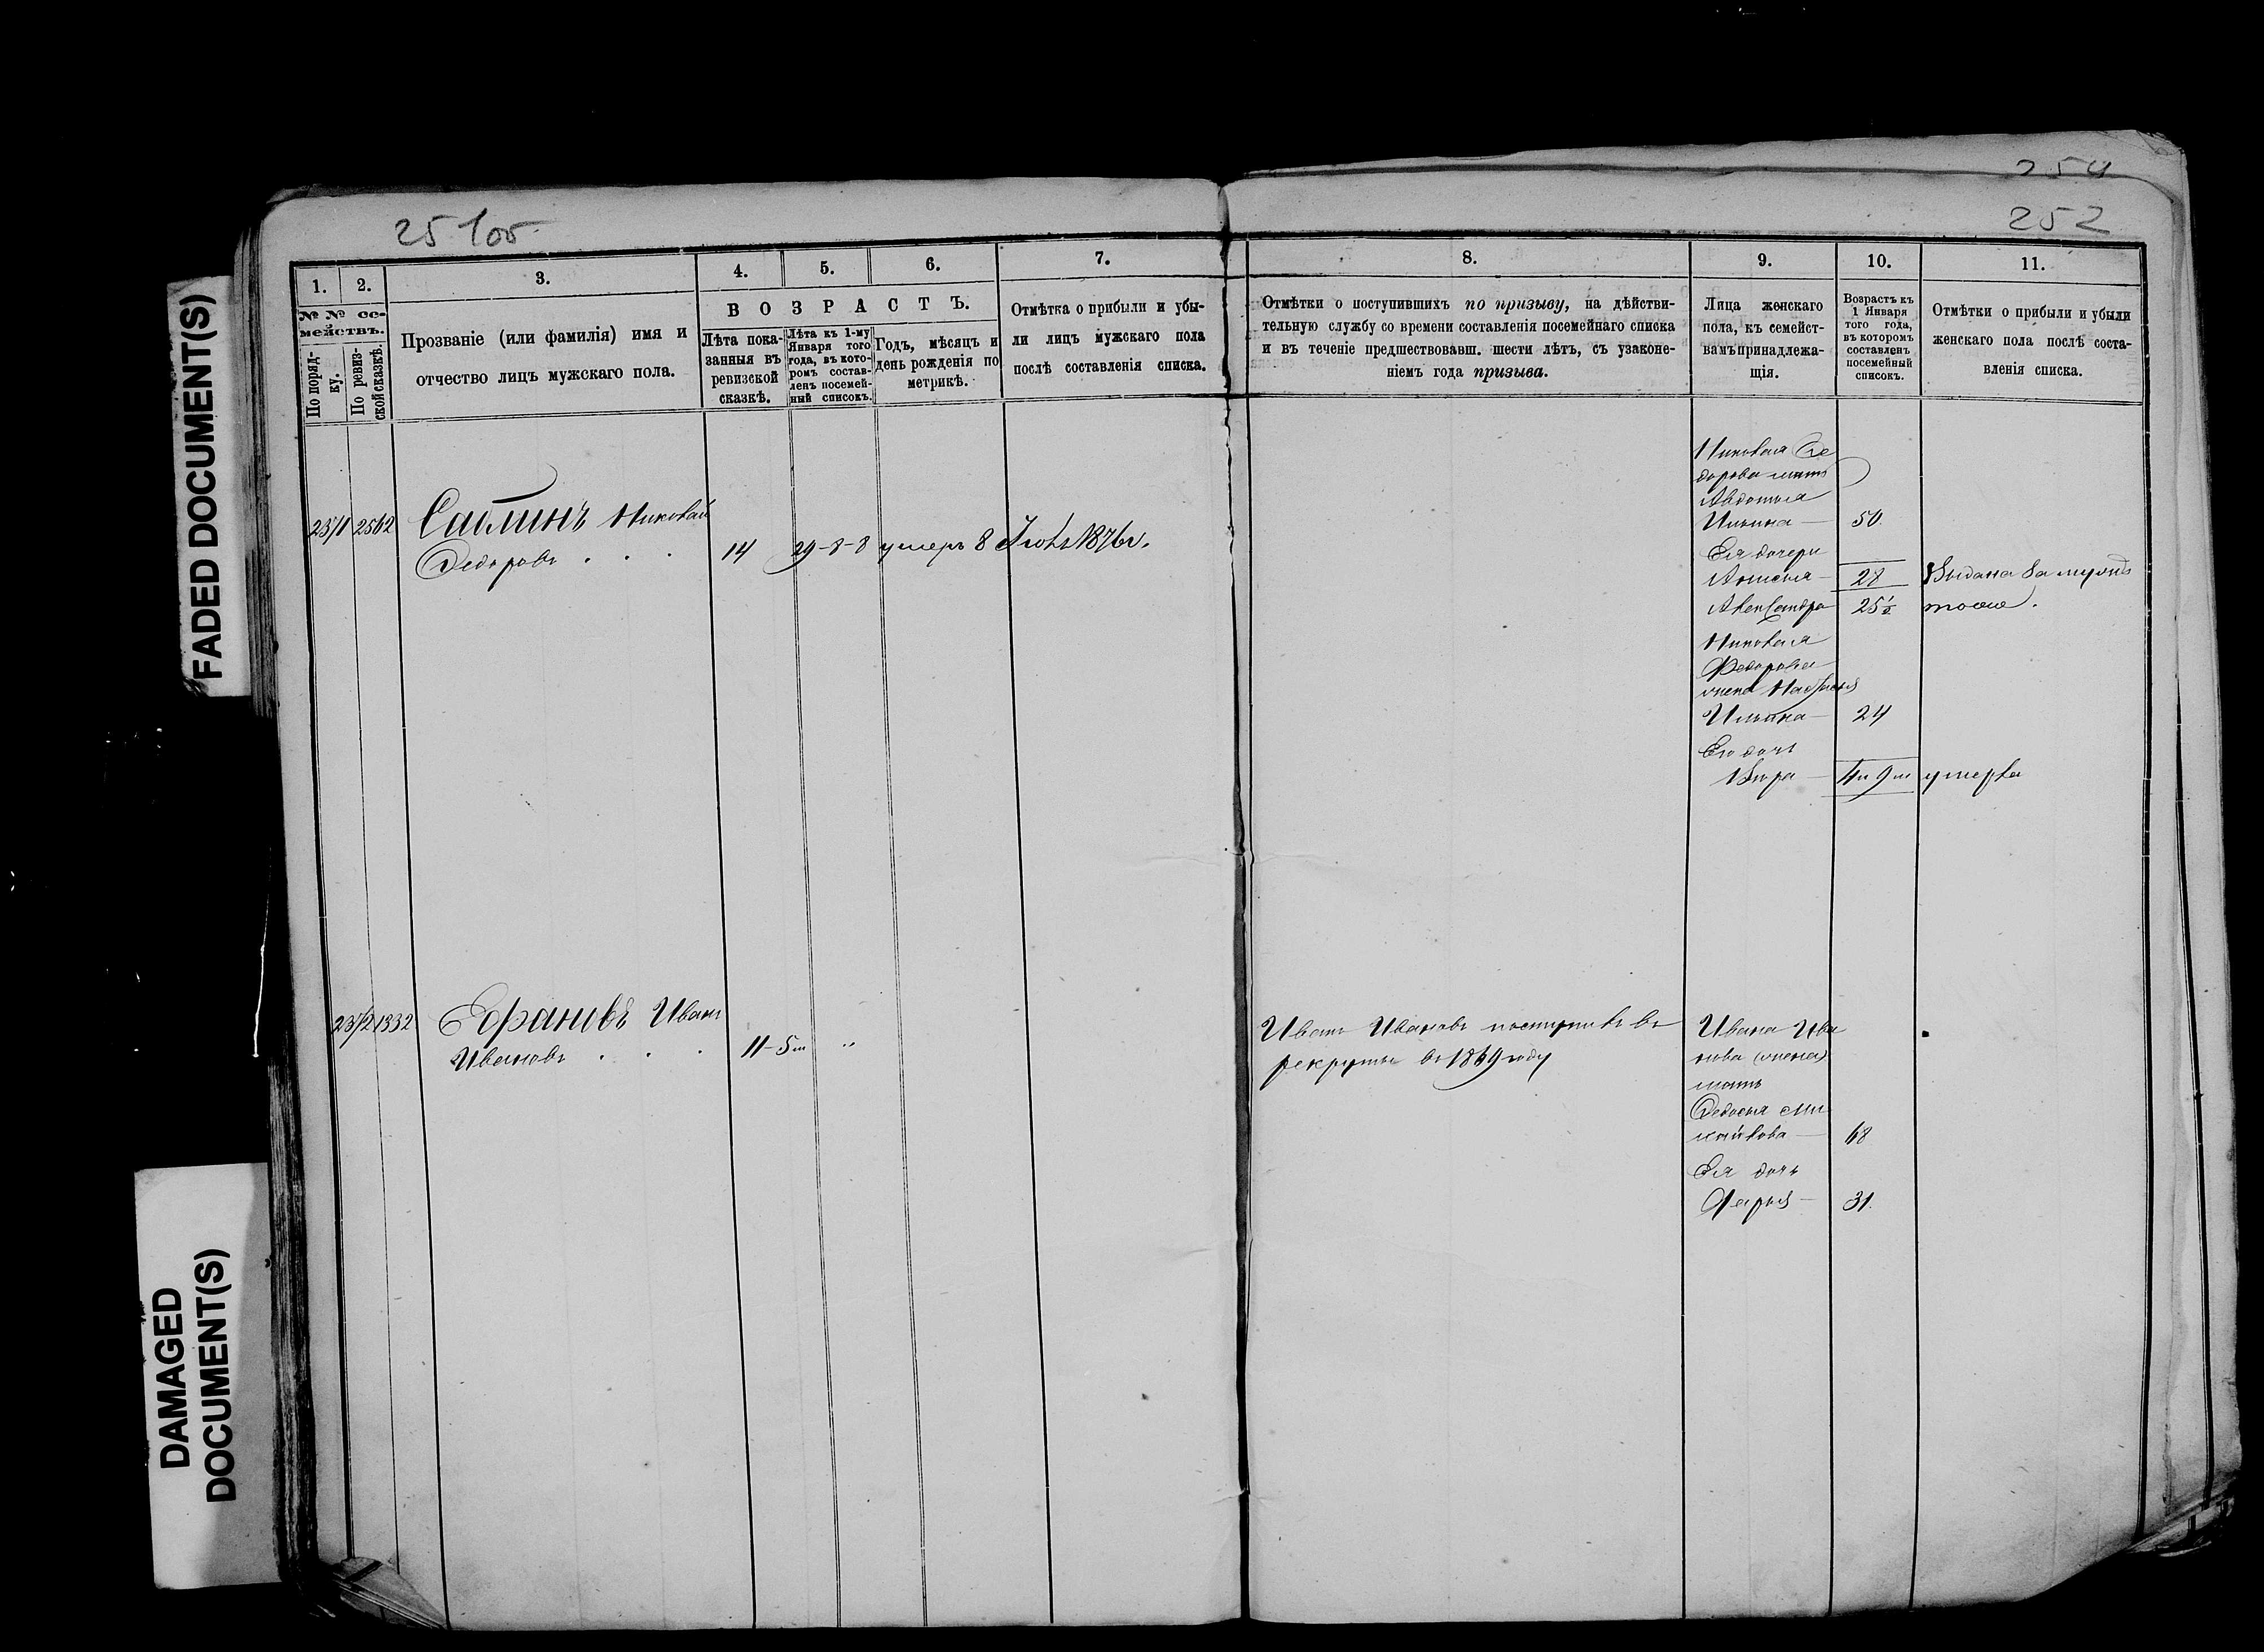 254
252
25 105
FADED DOCUMENT(S)
DAMAGED
DOCUMENT(S)
1.
2.
3.
4.
5.
6.
7.
8.
9.
10.
11.
№ № се-
мействъ.
По поряд-
ку.
По ревиз-
ской сказкѣ.
Прозваніе (или фамилія) имя и
отчество лицъ мужскаго пола.
ВОЗРАСТЪ.
Лѣта пока-
занныя въ
ревизской
сказкѣ.
Лѣта къ 1-му
Января того
года, въ кото-
ромъ состав-
ленъ посемей-
ный списокъ.
Годъ, мѣсяцъ и
день рожденія по
метрикѣ.
Отмѣтка о прибыли и убы-
ли лицъ мужскаго пола
послѣ составленія списка.
Отмѣтки о поступившихъ по призыву, на дѣйстви-
тельную службу со времени составленія посемейнаго списка
и въ теченіе предшествовавш. шести лѣтъ, съ узаконе-
ніемъ года призыва.
Лица женскаго
пола, къ семейст-
вамъ принадлежа-
щія.
Возрастъ къ
1 Января
того года,
въ которомъ
составленъ
посемейный
списокъ.
Отмѣтки о прибыли и убыли
женскаго пола послѣ соста-
вленія списка.
2371 2562 Саблинъ Николай
Федоровъ 14 29-8-8 умеръ 8 1876г.
Николая Фе
дорова мать
Авдотья
Ильина — 50.
Ея дочери
28 Выдана замужъ
Александра 25½ тоже.
Николая
Федорова
жена Настасья
Ильина — 24
Его дочь
Вѣра — 9 м умерла
2372 1332 Иванъ
Ивановъ 11-5м "
Иванъ Ивановъ поступилъ въ
рекруты въ 1869 году
Ивана Ива
нова
мать
Федосья Ми
хайлова — 68
Ея дочь
Дарья — 31.